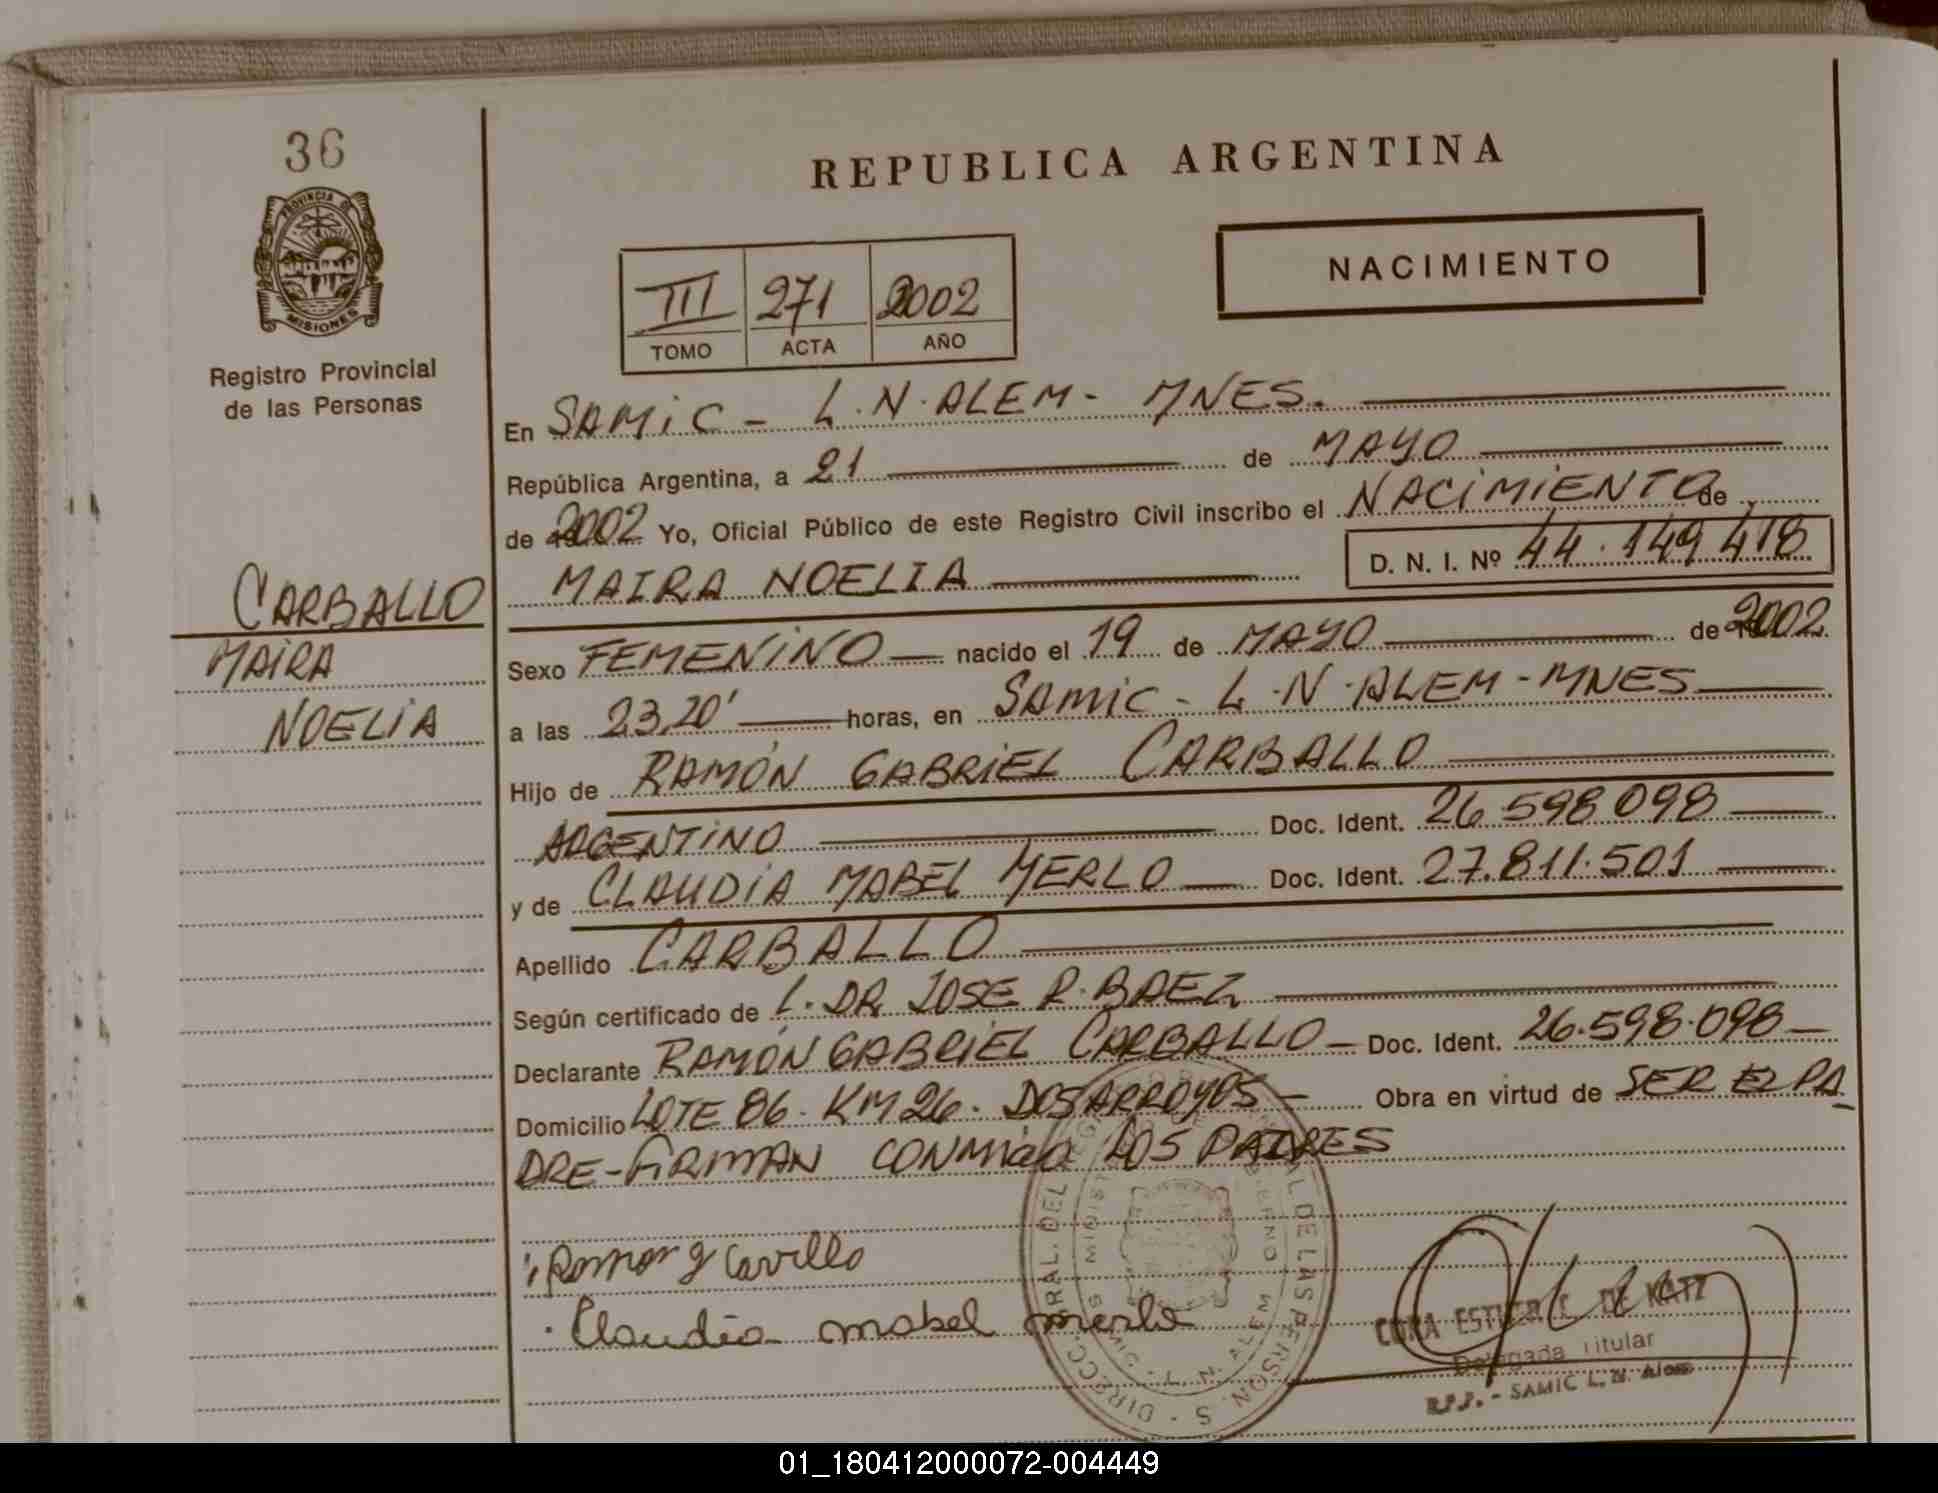 36
PROVINCIA DE
MISIONES
Registro Provincial
de las Personas
CARBALLO
MAIRA
NOELIA
REPUBLICA ARGENTINA
NACIMIENTO
III 271 2002
TOMO ACTA AÑO
En SAMIC - L.N. ALEM - MNES.
República Argentina, a 21 de MAYO
de 2002 Yo, Oficial Público de este Registro Civil inscribo el NACIMIENTO de
MAIRA NOELIA D. N. I. Nº 44.149.418
Sexo FEMENINO nacido el 19 de MAYO de 2002
a las 23,20' horas, en SAMIC - L.N. ALEM - MNES
Hijo de RAMÓN GABRIEL CARBALLO
ARGENTINO Doc. Ident. 26.598.098
y de CLAUDIA MABEL MERLO Doc. Ident. 27.811.501
Apellido CARBALLO
Según certificado de L. DR JOSE R. BAEZ
Declarante RAMÓN GABRIEL CARBALLO - Doc. Ident. 26.598.098
Domicilio LOTE 86. KM 26. DOS ARROYOS - Obra en virtud de SER EL PA
DRE - FIRMAN CONMIGO LOS PADRES
Ramon g Carvllo
Claudia mabel merlo
CORA ESTHER DE KATZ
Delegada Titular
R.P.P. - SAMIC L. N. Alem
01_180412000072-004449